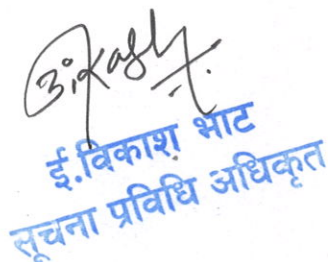 ई.विकाश भाट
सूचना प्रविधि अधिकृत